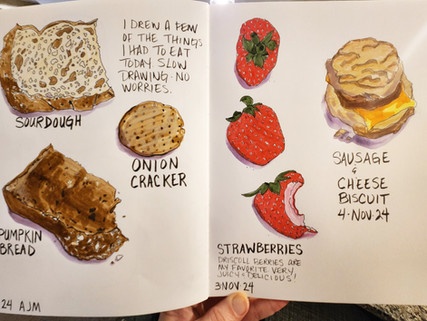 I DREW A FEW
OF THE THINGS
I HAD TO EAT
TODAY SLOW
DRAWING-NO
WORRIES.
SOURDOUGH
ONION
CRACKER
PUMPKIN
BREAD
24 AJM
STRAWBERRIES
DRISCOLL BERRIES ARE
MY FAVORITE VERY
JUICY + DELICIOUS!
3 NOV 24
SAUSAGE
&
CHEESE
BISCUIT
4-NOV 24